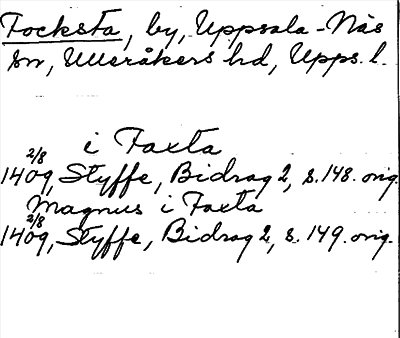 Focksta, by, Uppsala-Näs
sn, Ulleråkers hd, Upps. l.
i Faxta
2/8
1409, Styffe, Bidrag 2, s. 148. orig.
Magnus i Faxta
2/8
1409, Styffe, Bidrag 2, s. 149. orig.